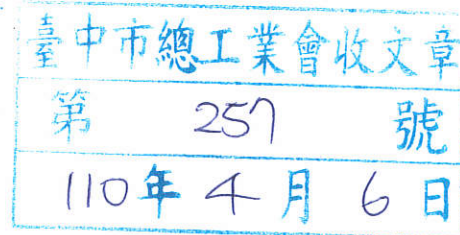 臺中市總工業會收文章
第 257 號
110年 4 月 6 日